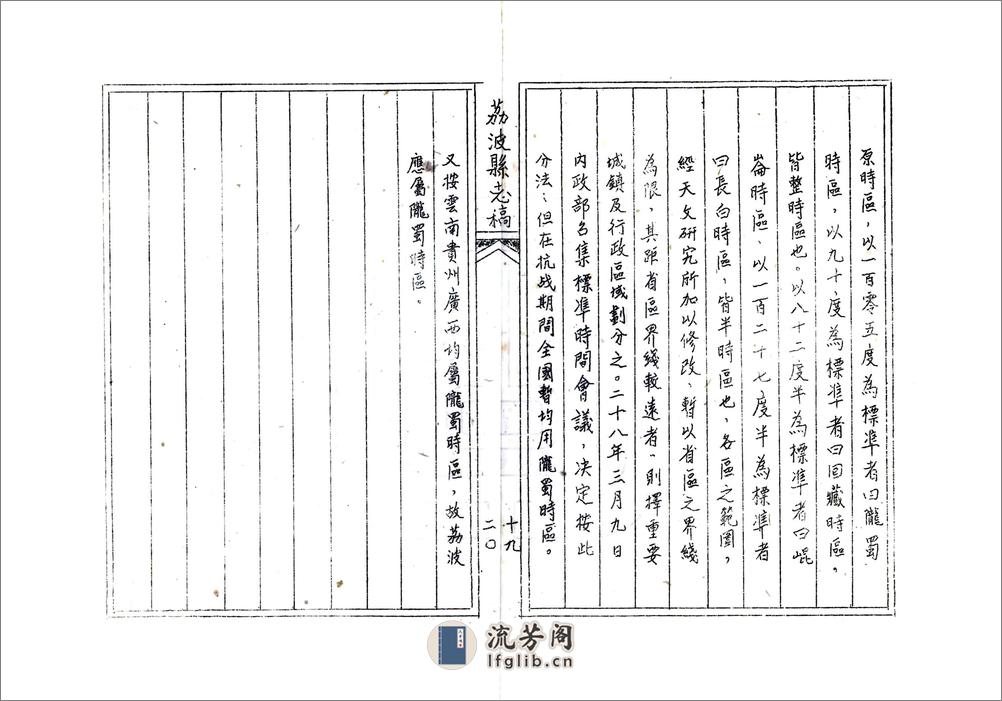 原時區，以一百零五度為標準者曰隴蜀
時區，以九十度為標準者曰回藏時區，
皆整時區也。以八十二度半為標準者曰崐
崙時區、以一百二十七度半為標準者
曰長白時區，皆半時區也，各區之範圍，
經天文研究所加以修改、暫以省區之界綫
為限，其距省區界綫較遠者，則擇重要
城鎮及行政區域劃分之。二十八年三月九日
內政部召集標準時間會議，決定按此
分法：但在抗战期間全國暫均用隴蜀時區。
荔波縣志稿
十九
二〇
又按雲南貴州廣西均屬隴蜀時區，故荔波
應屬隴蜀時區。
流芳阁
lfglib.cn